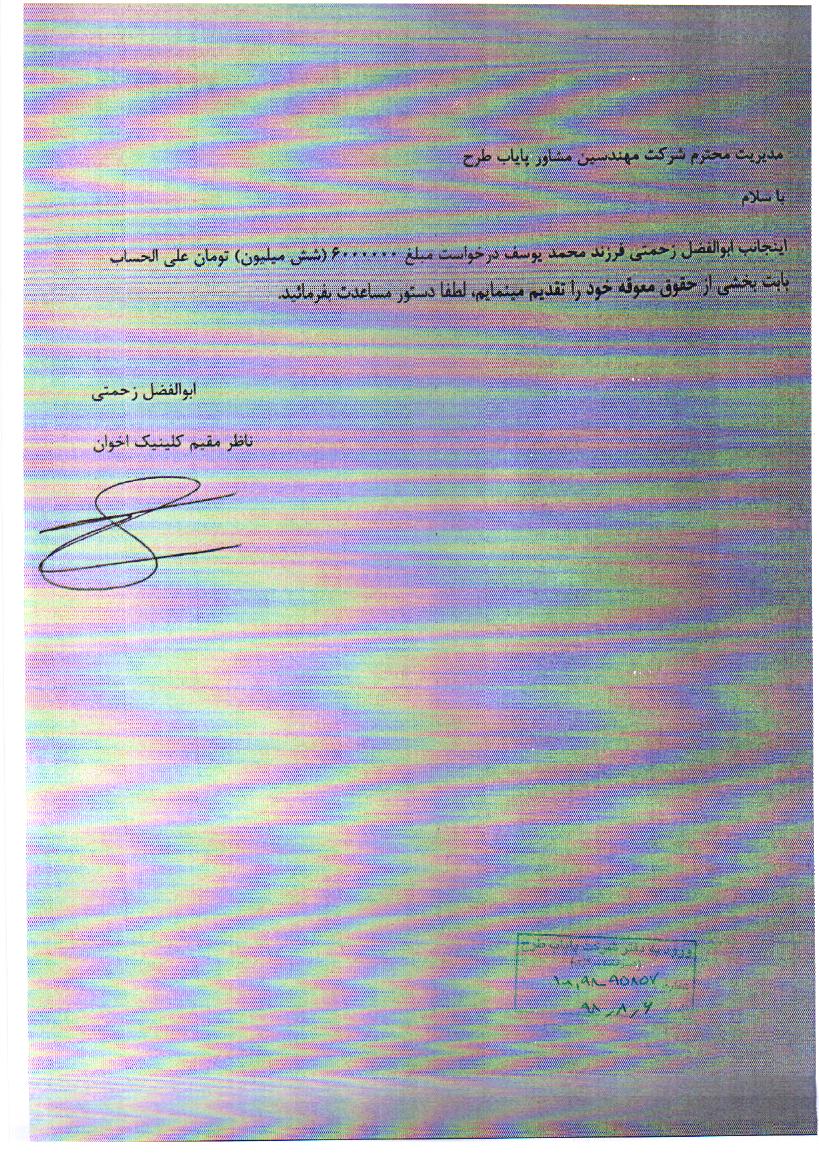 مدیریت محترم شرکت مهندسین مشاور پایاب طرح
با سلام
اینجانب ابوالفضل زحمتی فرزند محمد یوسف درخواست مبلغ ۶۰۰۰۰۰۰ (شش میلیون) تومان علی الحساب
بابت بخشی از حقوق معوقه خود را تقدیم مینمایم، لطفا دستور مساعدت بفرمائید.
ابوالفضل زحمتی
ناظر مقیم کلینیک اخوان
ورود به دفتر شرکت پایاب طرح
۱۰٫۹۸_۹۵۸۵۷
۹۸_۸_۶